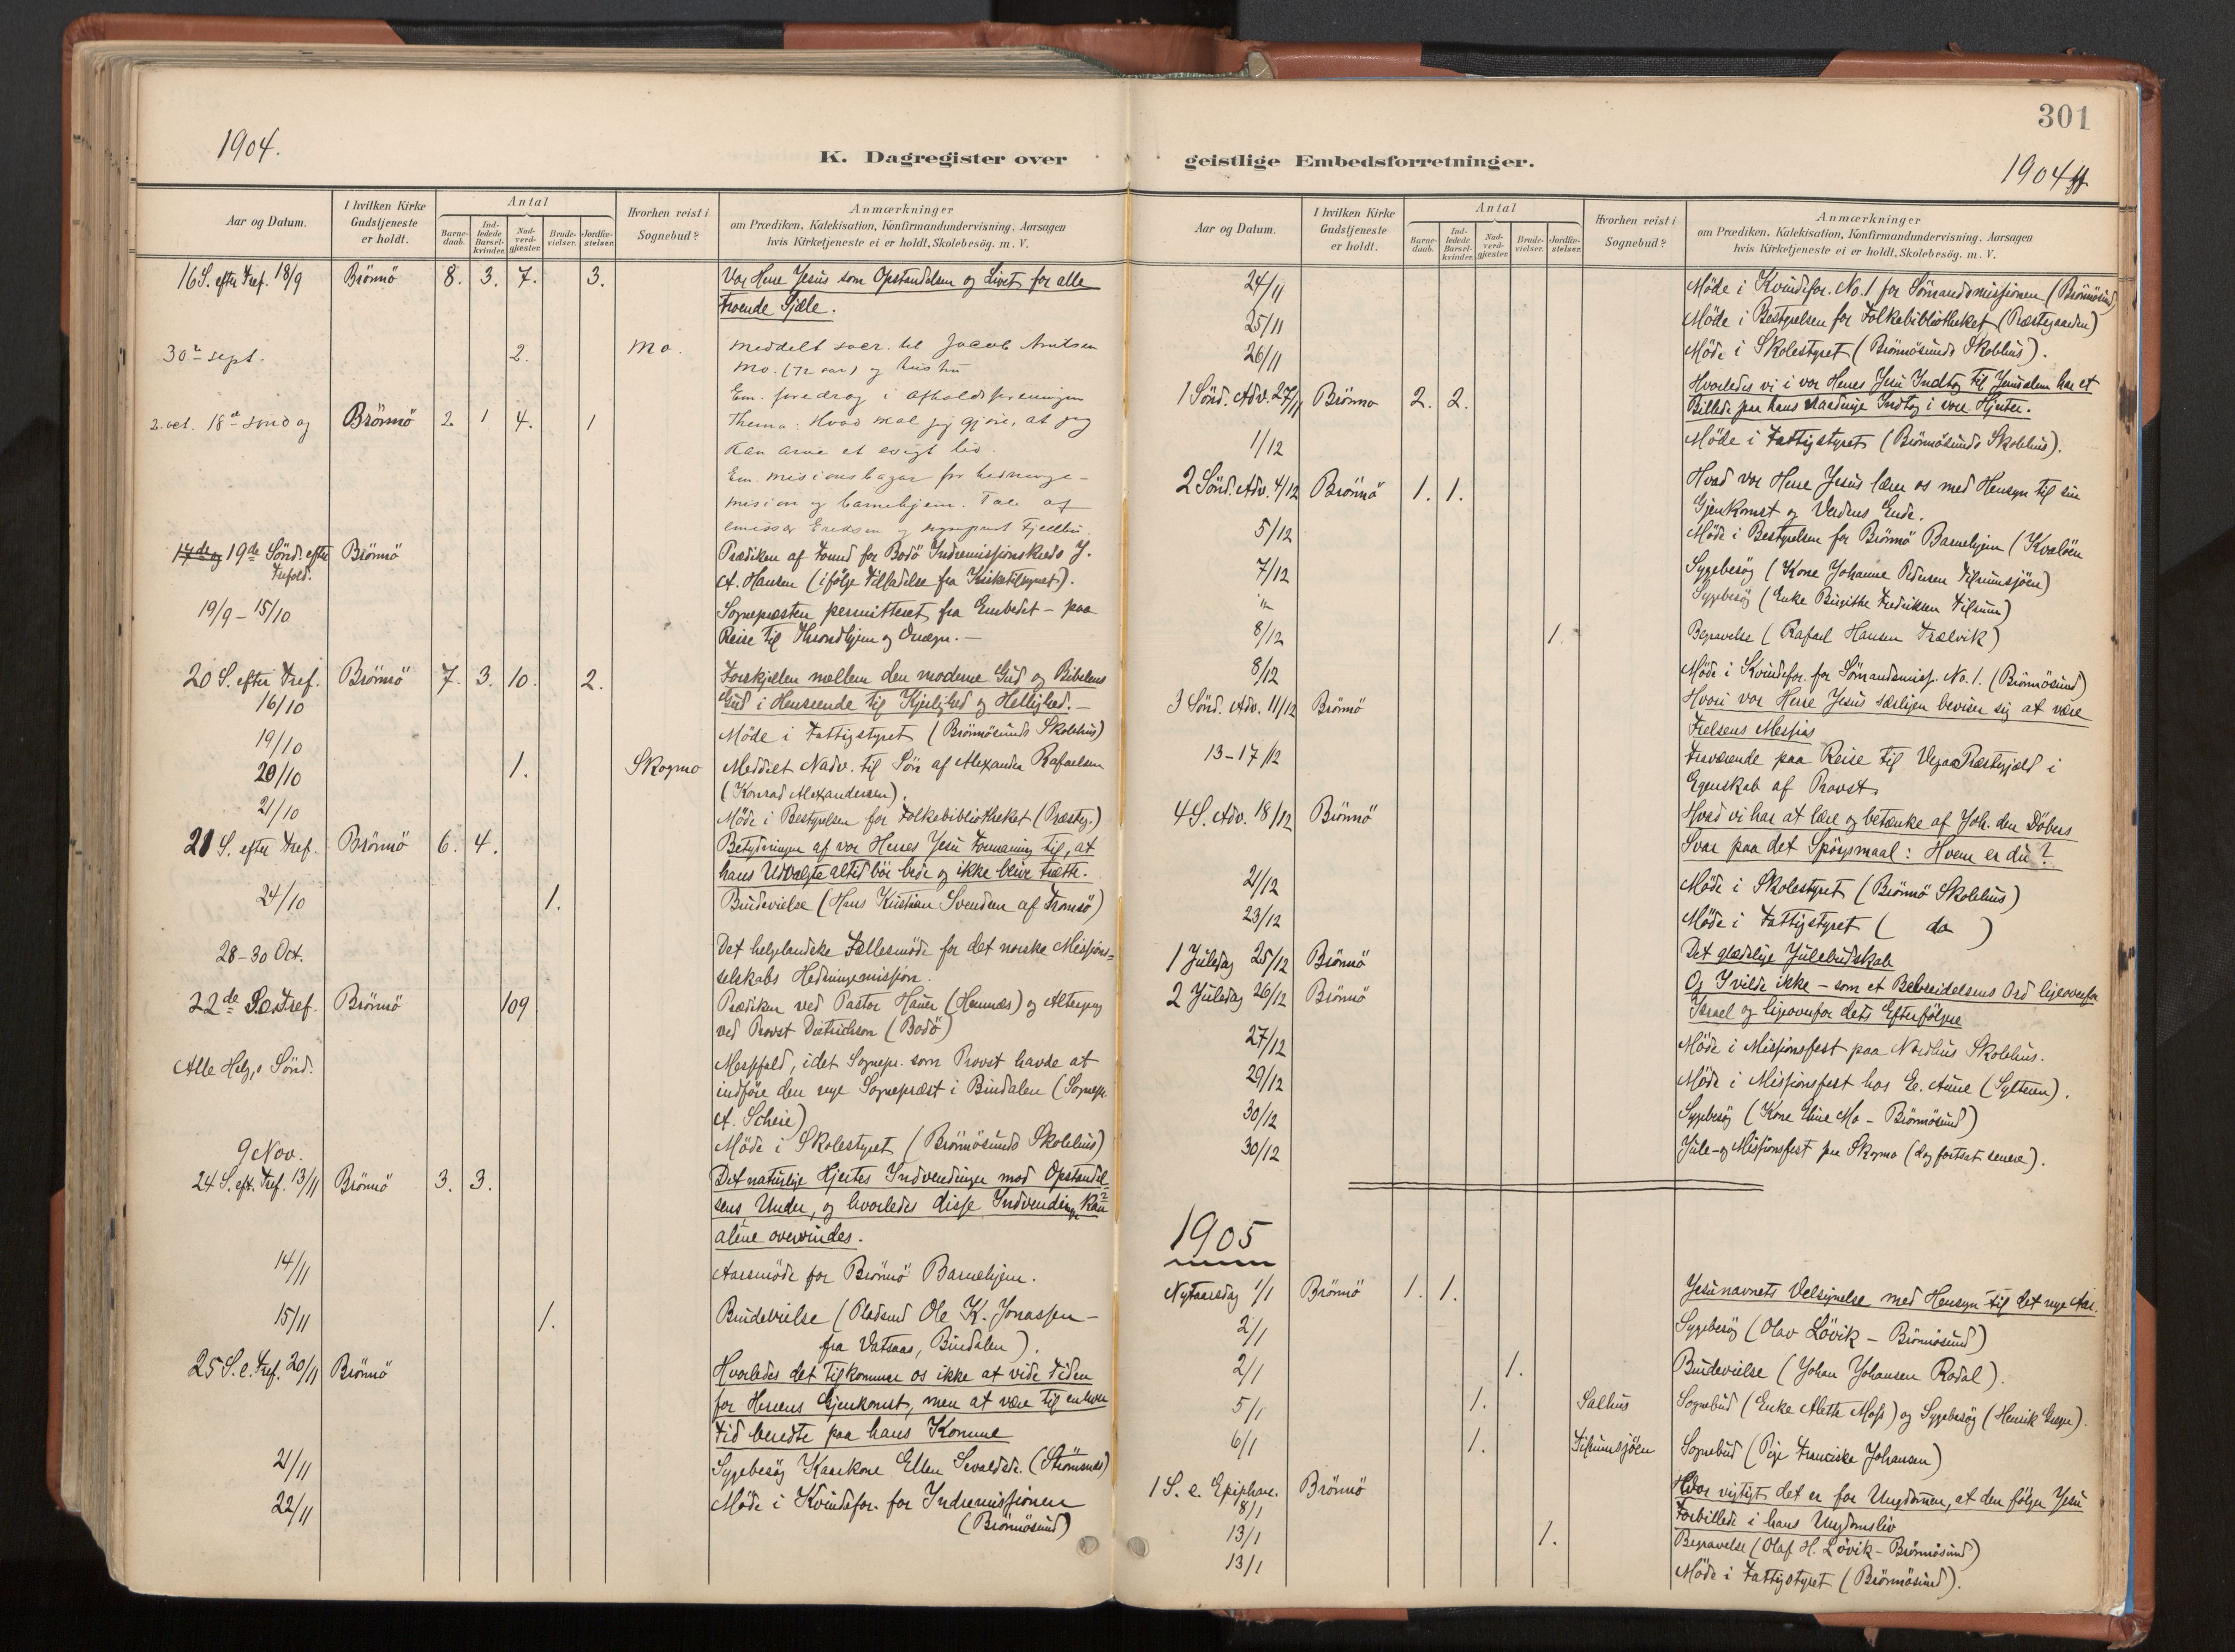 301
1904.
K. Dagregister over geistlige Embedsforretninger.
1904
Aar og Datum.
I hvilken Kirke Gudstjeneste er holdt.
Antal
Barne-daab.
Ind-ledede Barsel-kvinder.
Nad-verd-gjester.
Brude-vielser.
Jordfæ-stelser.
Hvorhen reist i Sognebud?
Anmærkninger
om Prædiken, Katekisation, Konfirmandundervisning, Aarsagen
hvis Kirketjeneste ei er holdt, Skolebesøg, m. V.
16 S. efter Tref. 18/9 Brönnö 8. 3. 7. 3. Vor Herre Jesus som Opstandelsen og Livet for alle
troende Sjæle.
30te sept. 2. Mo. Meddelt sacr. til Jacob Arntsen
Mo. (72 aar) og hustru
Em. foredrag i afholdsforeningen
2. oct. 18de sönd og Brönnö 2. 1 4. 1 Thema: Hvad skal jeg gjöre, at jeg
kan arve et evigt liv.
Em. missionsbazar for hedninge-
mision og barnehjem. Tale af
emissær Eriksen og
17de og 19de Sönd. efter Brönnö Prædiken af Formd for Bodö Indremissjonskreds J.
Trefold. A. Hansen (ifölge Tilladelse fra Kirketilsynet).
19/9 – 15/10 Sognepræsten permitteret fra Embedet – paa
Reise til Throndhjem og Omegn. –
20 S. efter Tref. Brönnö 7. 3. 10. 2. Forskjellen mellem den moderne Gud og Bibelens
16/10 Gud i Henseende til Kjærlighed og Hellighed. –
19/10 Möde i Fattigstyret (Brönnösunds Skolehus)
20/10 1. Skogmo Meddelt Nadv. til Sön af Alexander Rafaelsen
(Konrad Alexandersen).
21/10 Möde i Bestyrelsen for Folkebibliotheket (Præsteg.)
21 S. efter Tref. Brönnö 6. 4. Betydningen af vor Herres Jesu Formaning til, at
hans Udvalgte altid bör bede og ikke blive trætte.
24/10 1. Brudevielse (Hans Kristian Svendsen af Tromsö)
28–30 Oct. Det helgelandske Fællesmöde for det norske Missjons=
selskabs Hedningemissjon.
22de S. e. Tref. Brönnö 109 Prædiken ved Pastor Hauer (Hemnæs) og Altergang
ved Provst Dietrichson (Bodö)
Alle Helg.s Sönd. Messefald, idet Sognepr. som Provst havde at
indföre den nye Sognepræst i Bindalen (Sognepr.
A. Scheie)
9 Nov. Möde i Skolestyret (Brönnösunds Skolehus)
24 S. eft. Tref. 13/11 Brönnö 3. 3. Det naturlige Hjertes Indvendinger mod Opstandel=
sens Under, og hvorledes disse Indvendinger kan
alene overvindes.
14/11 Aarsmöde for Brönnö Barnehjem.
15/11 1. Brudevielse (Pladsmd Ole K. Jonassen –
fra Vatsaas, Bindalen).
25 S. e. Tref. 20/11 Brönnö Hvorledes det tilkommer os ikke at vide Tiden
for Herrens Gjenkomst, men at være til enhver
Tid beredte paa hans Komme
21/11 Sygebesög Kaarkone Ellen Sivaldsdr. (Strömsnæs)
22/11 Möde i Kvindefor. for Indremissjonen
(Brönnösund)
Aar og Datum.
I hvilken Kirke Gudstjeneste er holdt.
Antal
Barne-daab.
Ind-ledede Barsel-kvinder.
Nad-verd-gjester.
Brude-vielser.
Jordfæ-stelser.
Hvorhen reist i Sognebud?
Anmærkninger
om Prædiken, Katekisation, Konfirmandundervisning, Aarsagen
hvis Kirketjeneste ei er holdt, Skolebesøg, m. V.
24/11 Möde i Kvindefor. No. 1 for Sömandsmissjonen (Brönnösund)
25/11 Möde i Bestyrelsen for Folkebibliotheket (Præstegaarden)
26/11 Möde i Skolestyret (Brönnösunds Skolehus).
1 Sönd. Adv. 27/11 Brönnö 2. 2. Hvorledes vi i vor Herres Jesu Indtog til Jerusalem har et
Billede paa hans naaderige Indtog i vore Hjerter.
1/12 Möde i Fattigstyret (Brönnösunds Skolehus).
2 Sönd. Adv. 4/12 Brönnö 1. 1. Hvad vor Herre Jesus lærer os med Hensyn til sin
Gjenkomst og Verdens Ende.
5/12 Möde i Bestyrelsen for Brönnö Barnehjem (Kvalöen
7/12 Sygebesög (Kone Johanne Pedersen Tilremsjöen)
"– Sygebesög (Enke Birgithe Fredriksen Tilrem)
8/12 1. Begravelse (Rafael Hansen Trælvik)
8/12 Möde i Kvindefor. for Sömandsmiss. No. 1. (Brönnösund)
3 Sönd. Adv. 11/12 Brönnö Hvori vor Herre Jesus særligen beviser sig at være
Frelsens Messias
13–17/12 Fraværende paa Reise til Vega Præstegjæld i
Egenskab af Provst
4 S. Adv. 18/12 Brönnö Hvad vi har at lære og betænke af Joh. den Döbers
Svar paa det Spörgsmaal: Hvem er du?
21/12 Möde i Skolestyret (Brönnö Skolehus)
23/12 Möde i Fattigstyret ( do )
1 Juledag 25/12 Brönnö Det glædelige Julebudskab
2 Juledag 26/12 Brönnö Og I vilde ikke – som et Bebreidelsens Ord ligeoverfor
Israel og ligeoverfor dets Efterfölgere
27/12 Möde i Missjonsfest paa Nordhus Skolehus.
29/12 Möde i Missjonsfest hos E. Aune (Sylteren).
30/12 Sygebesög (Kone Eline Mo – Brönnösund)
30/12 Jule- og Missjonsfest paa Skogmo (dog fortsat senere).
1905
Nytaarsdag 1/1 Brönnö 1. 1. Jesunavnets Velsignelse med Hensyn til det nye Aar.
2/1 Sygebesög (Olav Lövik – Brönnösund)
2/1 1. Brudevielse (Johan Johansen Rodal).
5/1 1. Salhus Sognebud (Enke Aleth Moss) og Sygebesög (Henrik ).
6/1 1. Tilremsjöen Sognebud (Pige Franciske Johansen)
1 S. e. Epiphan. Brönnö Hvor vigtigt det er for Ungdommen, at den fölger Jesu
8/1 Forbillede i hans Ungdomsliv
13/1 1. Begravelse (Olaf H. Lövik – Brönnösund)
13/1 Möde i Fattigstyret (Brönnösund).